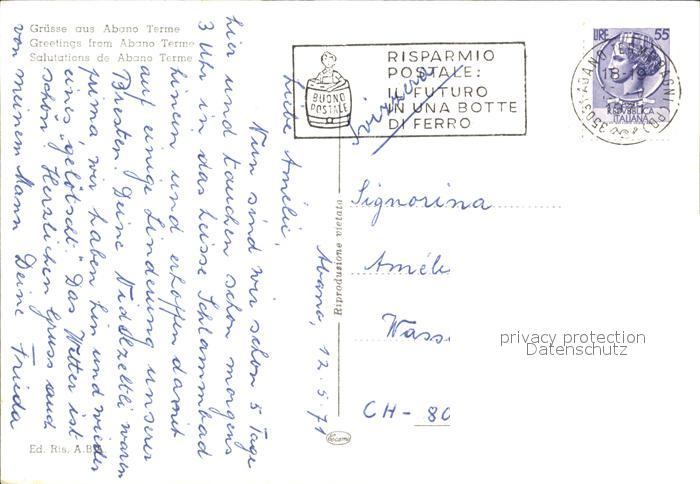 Grüsse aus Abano Terme
Greetings from Abano Terme
Salutations de Abano Terme
RISPARMIO
POSTALE:
IL FUTURO
IN UNA BOTTE
DI FERRO
BUONO
POSTALE
LIRE 55
REPUBBLICA
ITALIANA
35031 ABANO TERME
18-19
Svizzera
Abano, 12.5.71
Liebe Amélie,
Nun sind wir schon 5 Tage
hier und tauchen schon morgens
3 Uhr in das heisse Schlammbad
hinein und erhoffen damit
auf einige Linderung unserer
Bresten. Deine
waren
prima, wir haben hin und wieder
eines "gelötscht". Das Wetter ist
schön. Herzlichen Gruss auch
von meinem Mann Deine Frieda
Riproduzione vietata
Signorina
Améli
Wass
CH- 80
privacy protection
Datenschutz
Ed. Ris. A.